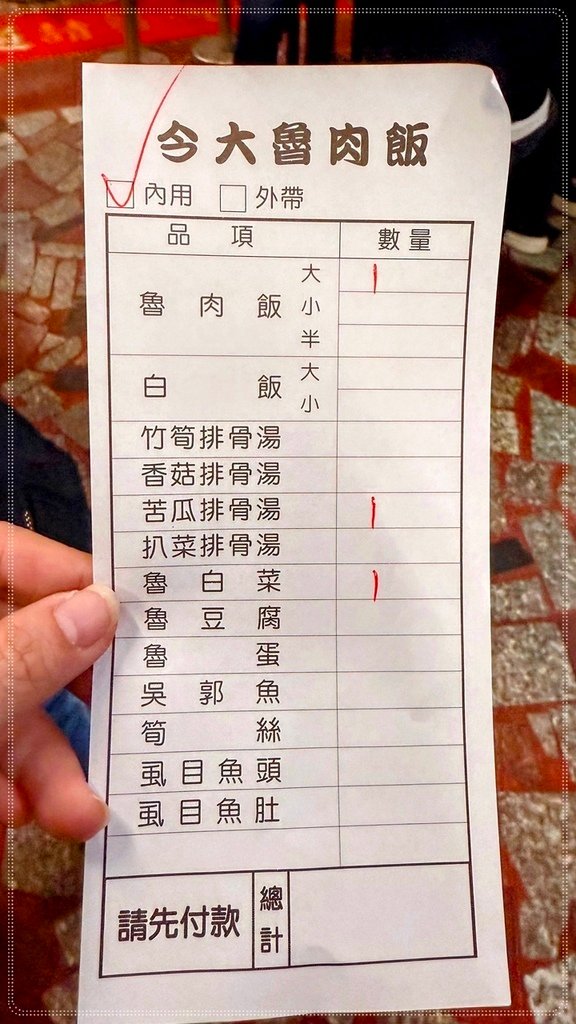 今大魯肉飯
內用 外帶
品項 數量
魯肉飯 大 1
小
半
白飯 大
小
竹筍排骨湯
香菇排骨湯
苦瓜排骨湯 1
扒菜排骨湯
魯白菜 1
魯豆腐
魯蛋
吳郭魚
筍絲
虱目魚頭
虱目魚肚
請先付款 總計